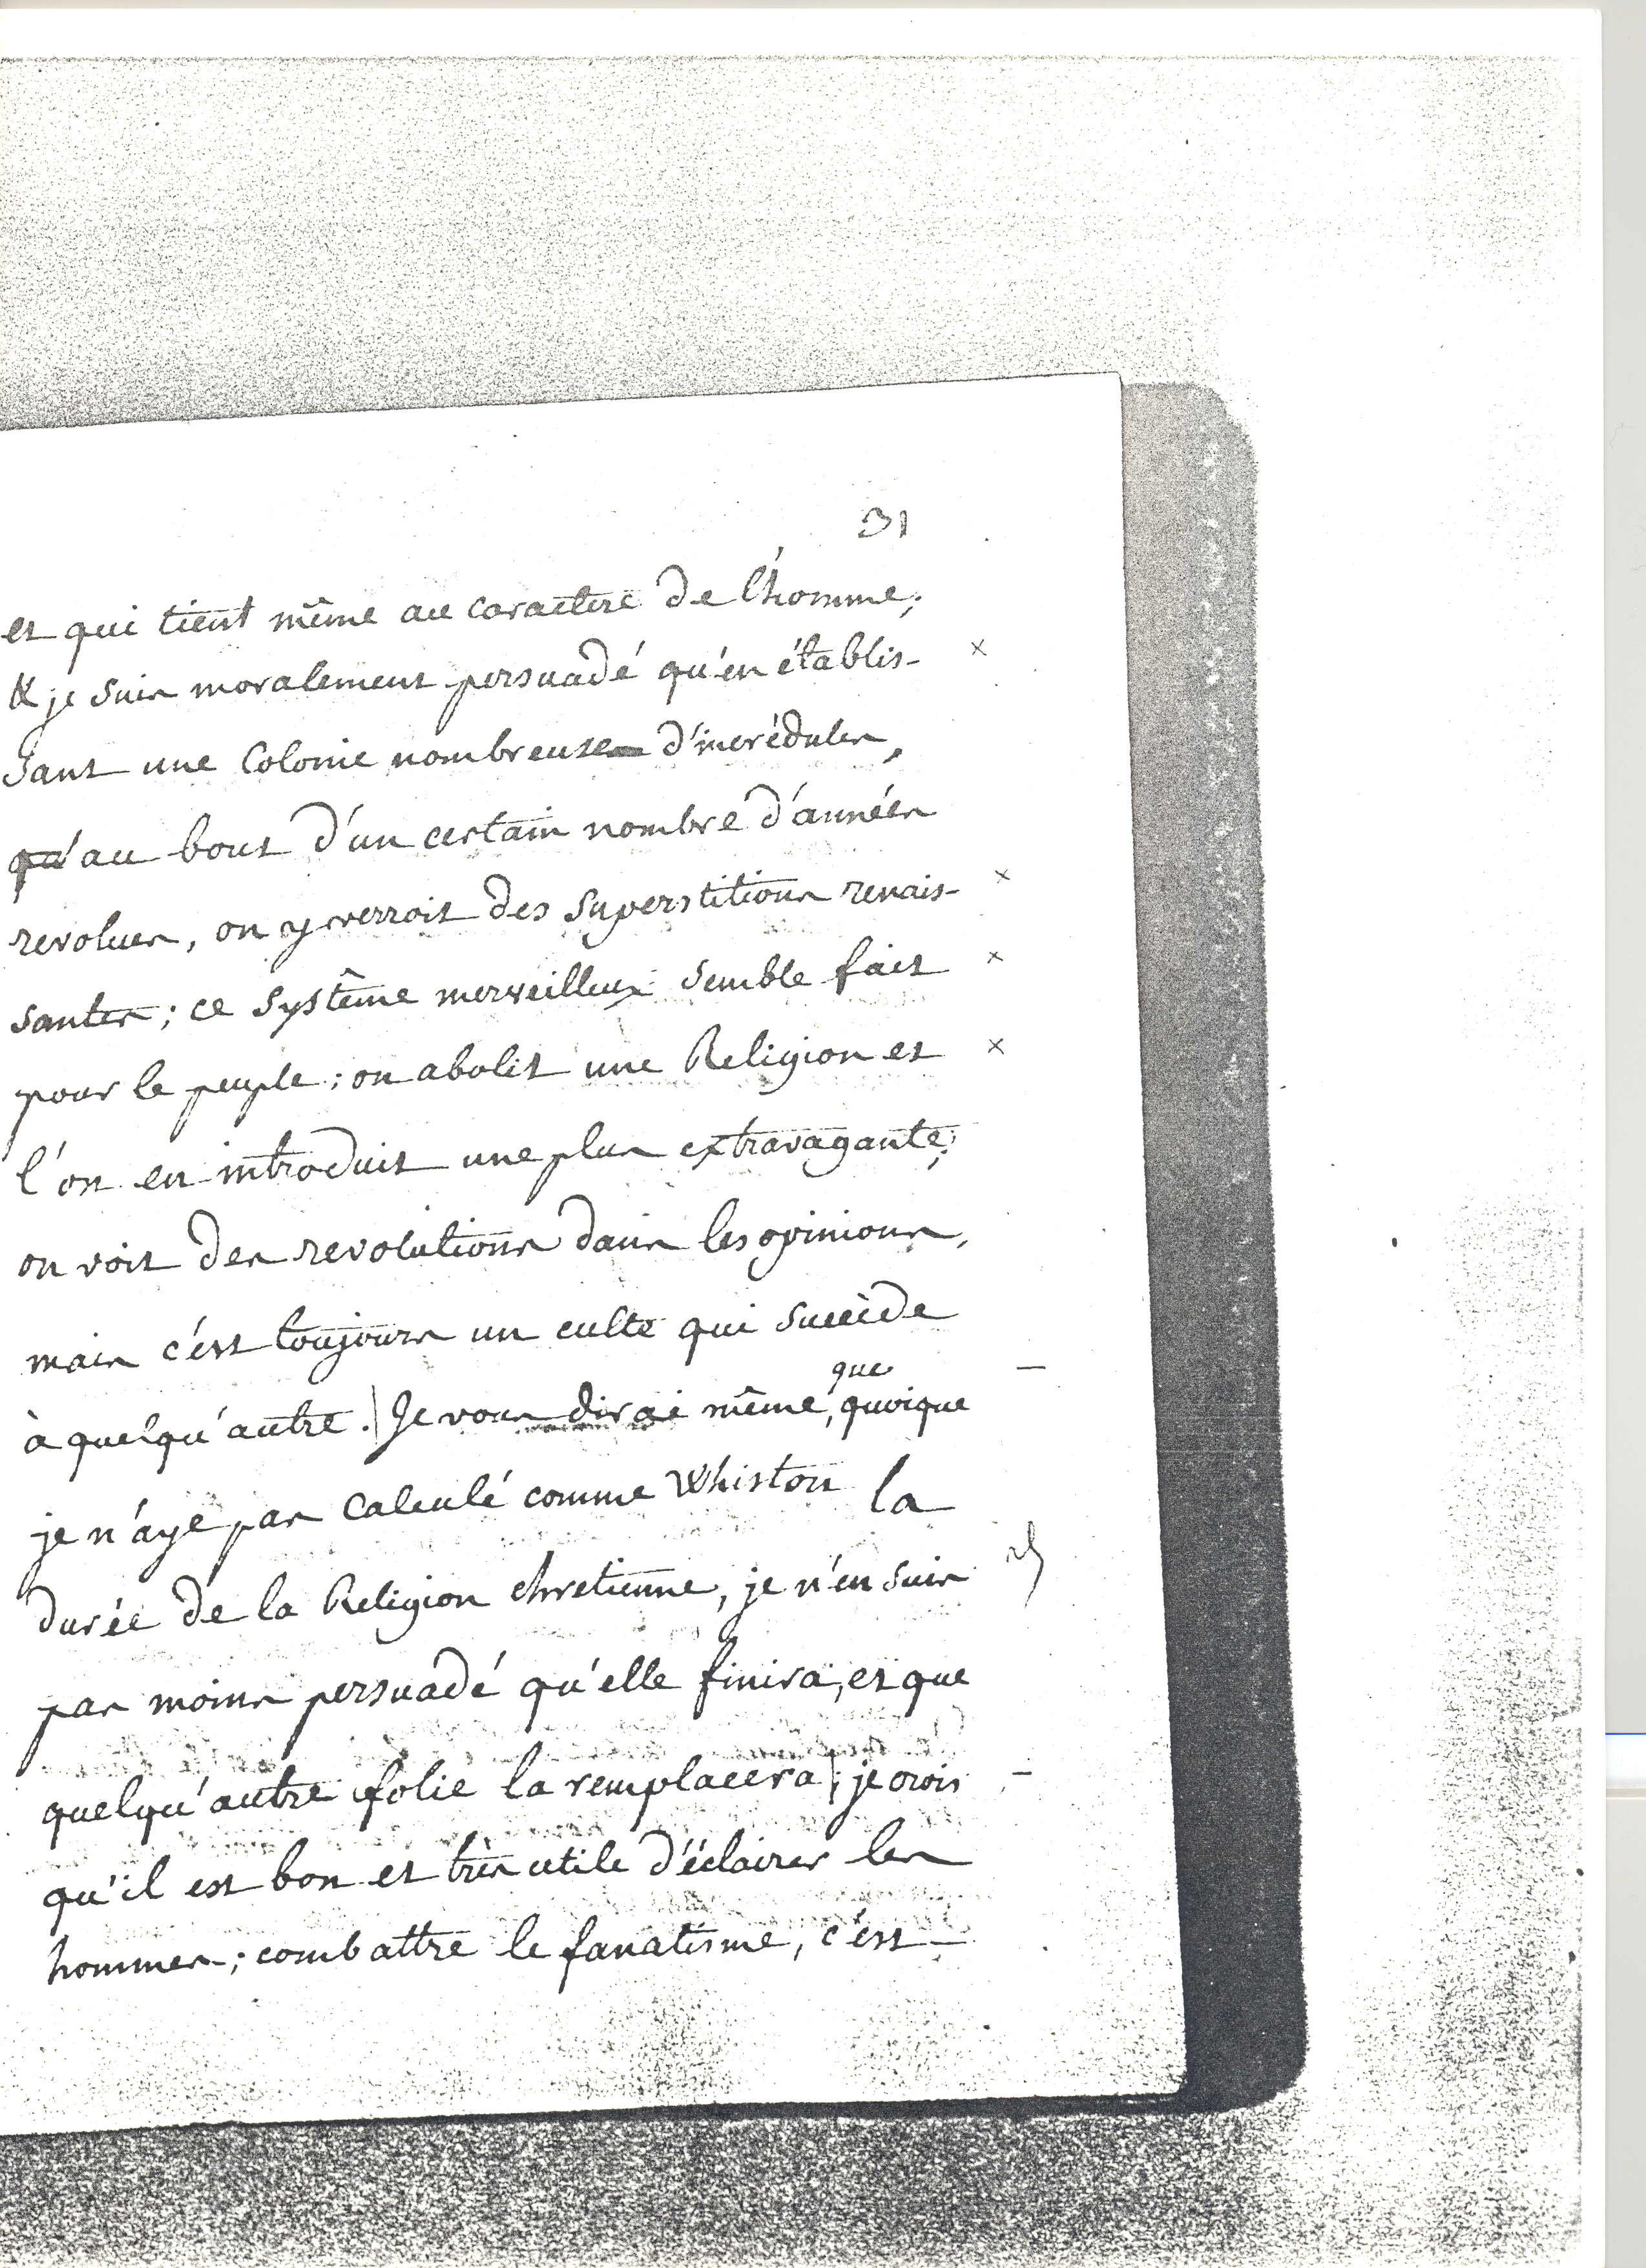 31
et qui tient même au caractere de l'homme;
& je suis moralement persuadé qu'en établis- ×
sant une Colonie nombreuse d'incrédules,
qu'au bout d'un certain nombre d'années
revolues, on y verroit des superstitions renais- ×
santes; ce systême merveilleux semble fait ×
pour le peuple; on abolit une Religion et ×
l'on en introduit une plus extravagante;
on voit des revolutions dans les opinions,
mais c'est toujours un culte qui succède
que
à quelqu'autre. | Je vous dirai même, quoique –
je n'aye pas calculé comme Whiston la
durée de la Religion chretienne, je n'en suis
pas moins persuadé qu'elle finira, et que
quelqu'autre folie la remplacera |; je crois –
qu'il est bon et très utile d'éclairer les
hommes; combattre le fanatisme, c'est